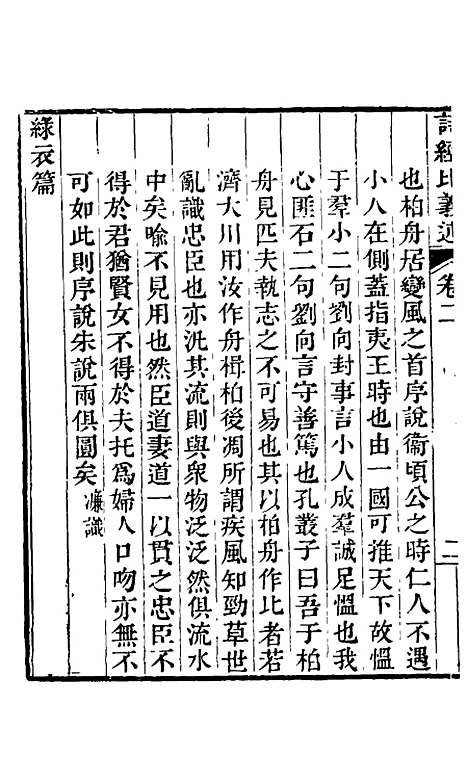 詩經比義述 卷二 二
也柏舟居變風之首序說衞頃公之時仁人不遇
小人在側蓋指夷王時也由一國可推天下故慍
于羣小二句劉向封事言小人成羣誠足慍也我
心匪石二句劉向言守善篤也孔叢子曰吾于柏
舟見匹夫執志之不可易也其以柏舟作比者若
濟大川用汝作舟楫柏後凋所謂疾風知勁草世
亂識忠臣也亦汎其流則與衆物泛泛然俱流水
中矣喻不見用也然臣道妻道一以貫之忠臣不
得於君猶賢女不得於夫托爲婦人口吻亦無不
可如此則序說朱說兩俱圓矣 濂識
綠衣篇